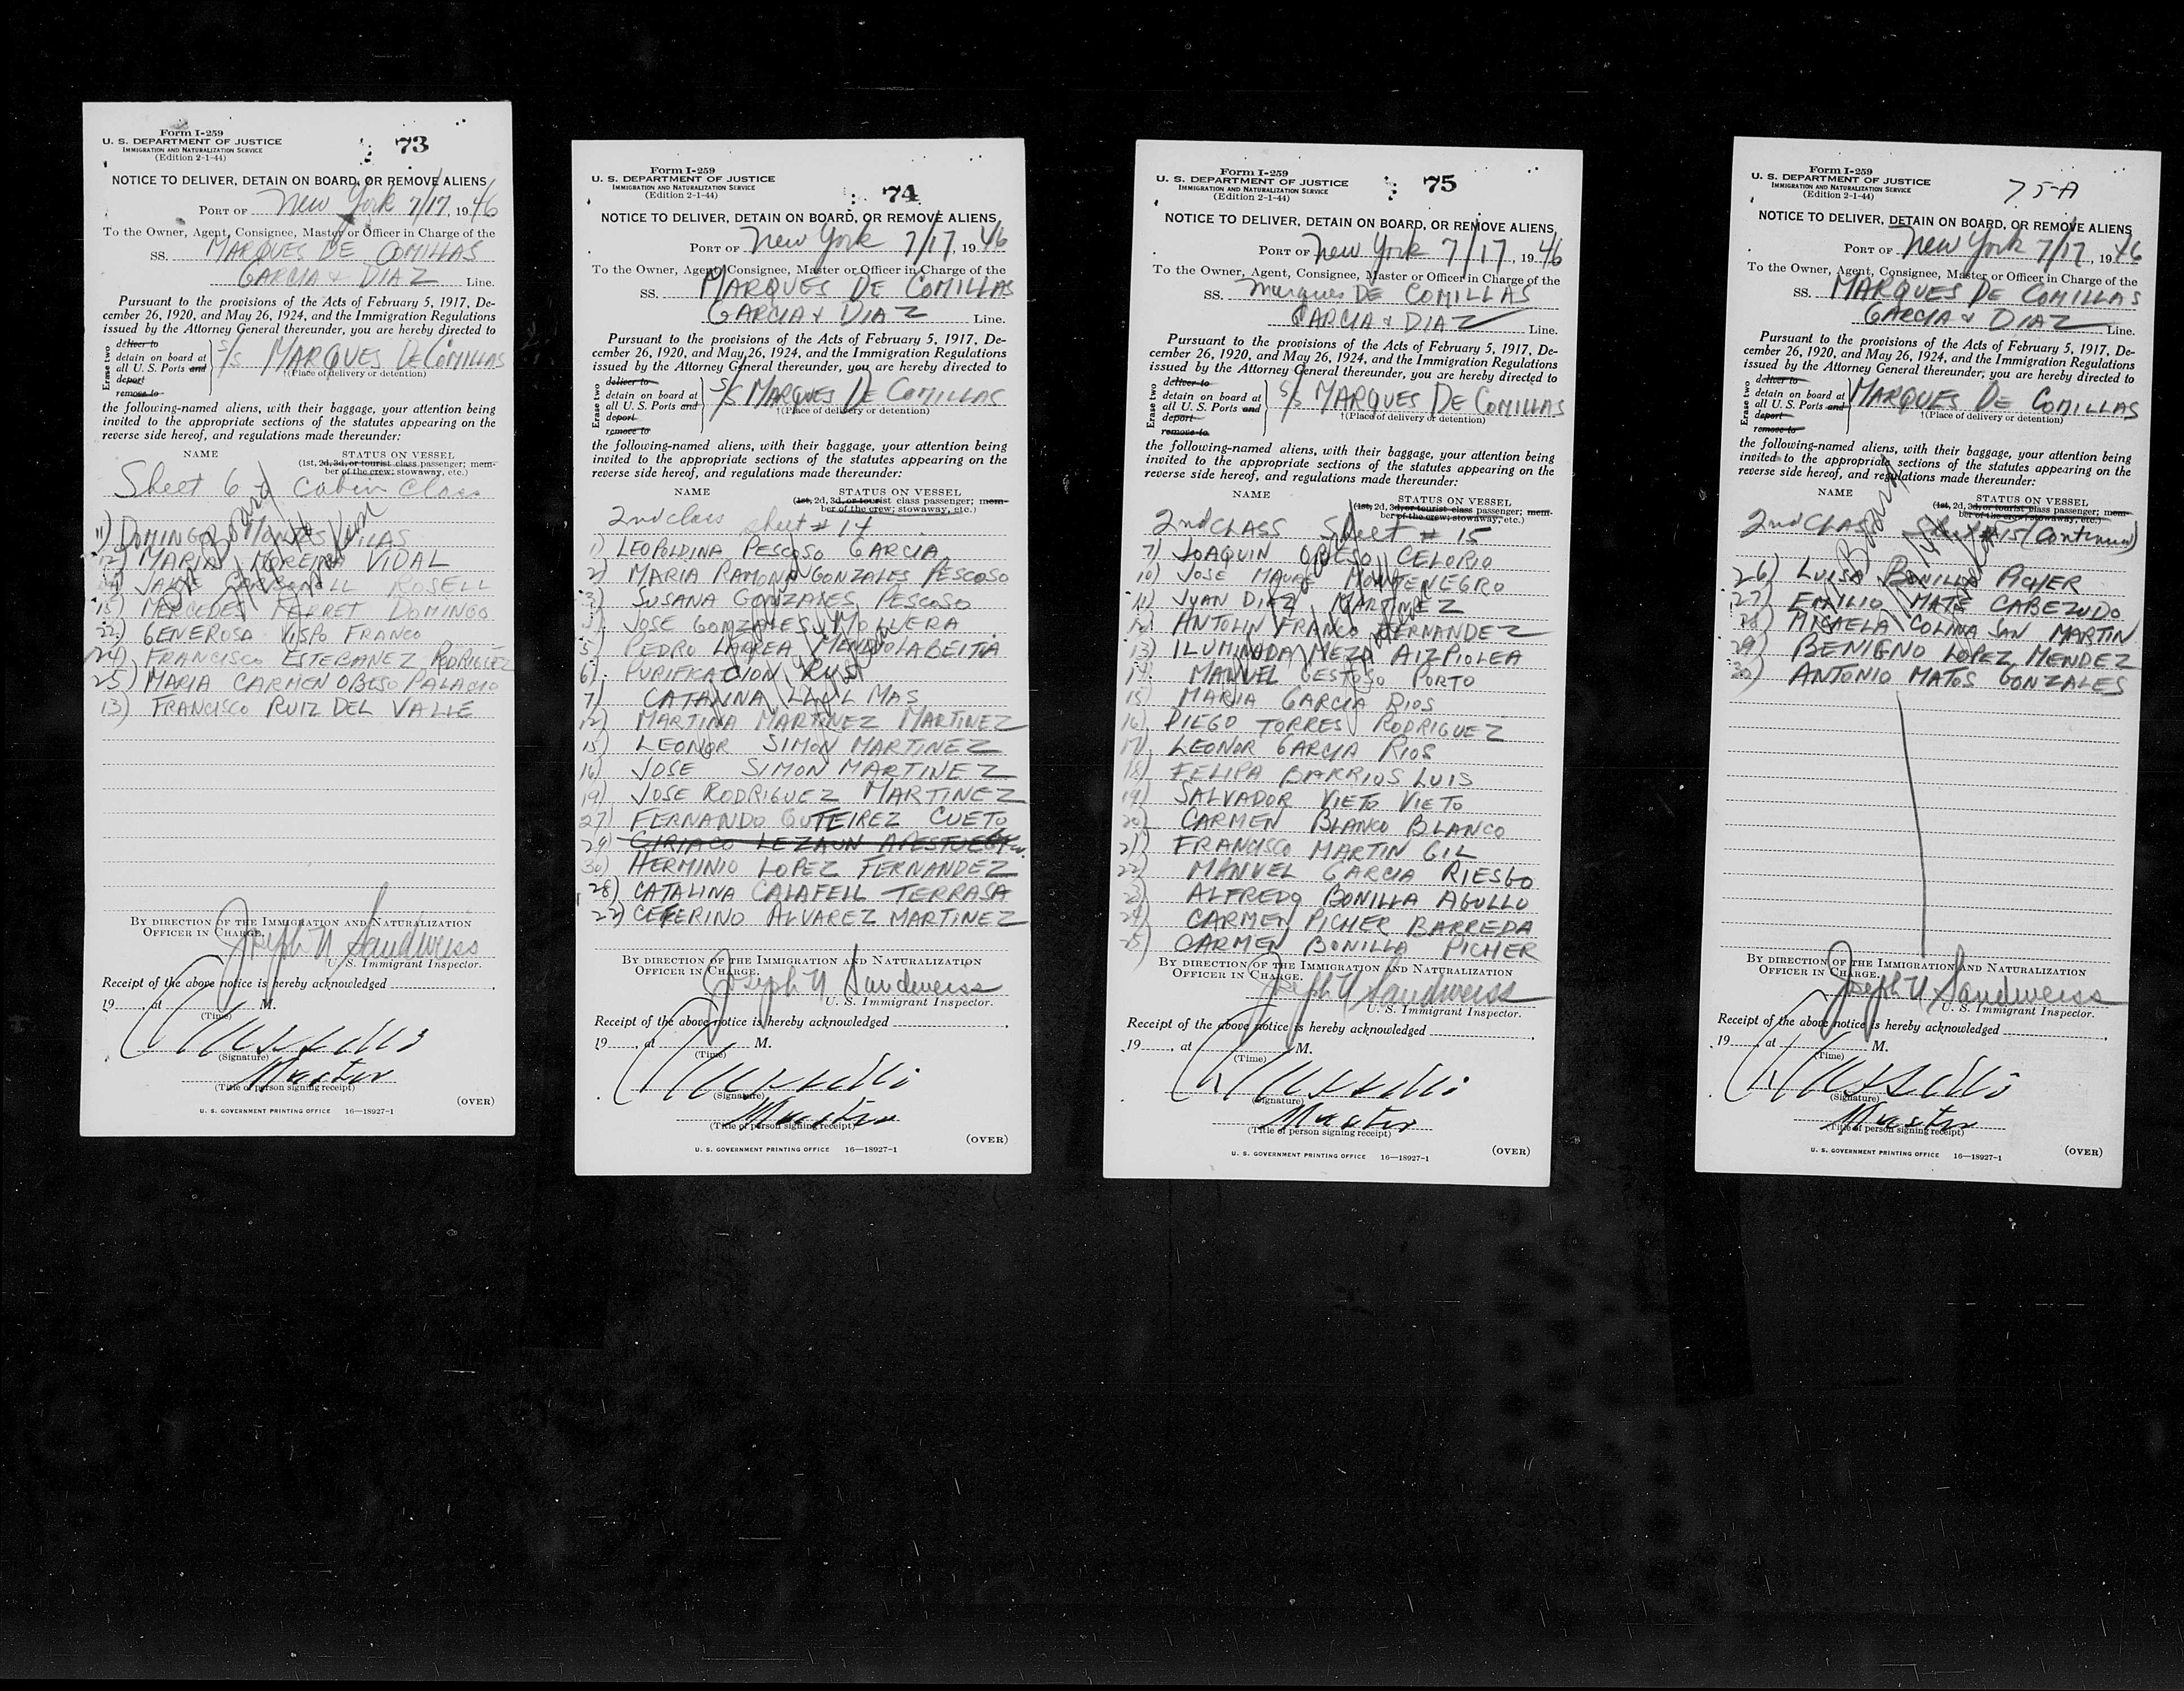 Form I-259
U. S. DEPARTMENT OF JUSTICE
IMMIGRATION AND NATURALIZATION SERVICE
(Edition 2-1-44)
73
NOTICE TO DELIVER, DETAIN ON BOARD, OR REMOVE ALIENS
PORT OF New York 7/17, 1946
To the Owner, Agent, Consignee, Master or Officer in Charge of the
SS. MARQUES DE COMILLAS
GARCIA & DIAZ Line.
Pursuant to the provisions of the Acts of February 5, 1917, De-
cember 26, 1920, and May 26, 1924, and the Immigration Regulations
issued by the Attorney General thereunder, you are hereby directed to
Erase two
deliver to
detain on board at
all U. S. Ports and
deport
remove to
S/S MARQUES DE COMILLAS
†(Place of delivery or detention)
the following-named aliens, with their baggage, your attention being
invited to the appropriate sections of the statutes appearing on the
reverse side hereof, and regulations made thereunder:
NAME STATUS ON VESSEL
(1st, 2d, 3d, or tourist class passenger; mem-
ber of the crew; stowaway, etc.)
Sheet 6 - Cabin Class
11) DOMINGO MONTES VILAS
12) MARIA MOREIRA VIDAL
14) JAIME CARBONELL ROSELL
15) MERCEDES FERRET DOMINGO
22) GENEROSA VISPO FRANCO
24) FRANCISCO ESTEBANEZ RODRIGUEZ
25) MARIA CARMEN OBESO PALACIO
13) FRANCISCO RUIZ DEL VALLE
On Board
BY DIRECTION OF THE IMMIGRATION AND NATURALIZATION
OFFICER IN CHARGE.
Joseph N Sandweiss
U. S. Immigrant Inspector.
Receipt of the above notice is hereby acknowledged
19 , at M.
(Time)
(Signature)
Master
(Title of person signing receipt)
U. S. GOVERNMENT PRINTING OFFICE 16—18927-1
(OVER)
Form I-259
U. S. DEPARTMENT OF JUSTICE
IMMIGRATION AND NATURALIZATION SERVICE
(Edition 2-1-44)
74
NOTICE TO DELIVER, DETAIN ON BOARD, OR REMOVE ALIENS
PORT OF New York 7/17, 1946
To the Owner, Agent, Consignee, Master or Officer in Charge of the
SS. MARQUES DE COMILLAS
GARCIA & DIAZ Line.
Pursuant to the provisions of the Acts of February 5, 1917, De-
cember 26, 1920, and May 26, 1924, and the Immigration Regulations
issued by the Attorney General thereunder, you are hereby directed to
Erase two
deliver to
detain on board at
all U. S. Ports and
deport
remove to
S/S MARQUES DE COMILLAS
†(Place of delivery or detention)
the following-named aliens, with their baggage, your attention being
invited to the appropriate sections of the statutes appearing on the
reverse side hereof, and regulations made thereunder:
NAME STATUS ON VESSEL
(1st, 2d, 3d, or tourist class passenger; mem-
ber of the crew; stowaway, etc.)
2nd Class sheet # 14
1) LEOPOLDINA PESCOSO GARCIA
2) MARIA RAMONA GONZALES PESCOSO
3) SUSANA GONZALES PESCOSO
4) JOSE GONZALES MOLLERA
5) PEDRO LARREA MENDIOLABEITIA
6) PURIFICACION RUS
7) CATALINA LLULL MAS
12) MARTINA MARTINEZ MARTINEZ
15) LEONOR SIMON MARTINEZ
16) JOSE SIMON MARTINEZ
19) JOSE RODRIGUEZ MARTINEZ
27) FERNANDO GUTEIREZ CUETO
29) CIRIACO LEZAUN APESTUEGUY
30) HERMINIO LOPEZ FERNANDEZ
28) CATALINA CALAFELL TERRASA
22) CEFERINO ALVAREZ MARTINEZ
BY DIRECTION OF THE IMMIGRATION AND NATURALIZATION
OFFICER IN CHARGE.
Joseph N Sandweiss
U. S. Immigrant Inspector.
Receipt of the above notice is hereby acknowledged
19 , at M.
(Time)
(Signature)
Master
(Title of person signing receipt)
U. S. GOVERNMENT PRINTING OFFICE 16—18927-1
(OVER)
Form I-259
U. S. DEPARTMENT OF JUSTICE
IMMIGRATION AND NATURALIZATION SERVICE
(Edition 2-1-44)
75
NOTICE TO DELIVER, DETAIN ON BOARD, OR REMOVE ALIENS
PORT OF New York 7/17, 1946
To the Owner, Agent, Consignee, Master or Officer in Charge of the
SS. Marques DE COMILLAS
GARCIA & DIAZ Line.
Pursuant to the provisions of the Acts of February 5, 1917, De-
cember 26, 1920, and May 26, 1924, and the Immigration Regulations
issued by the Attorney General thereunder, you are hereby directed to
Erase two
deliver to
detain on board at
all U. S. Ports and
deport
remove to
S/S MARQUES DE COMILLAS
†(Place of delivery or detention)
the following-named aliens, with their baggage, your attention being
invited to the appropriate sections of the statutes appearing on the
reverse side hereof, and regulations made thereunder:
NAME STATUS ON VESSEL
(1st, 2d, 3d, or tourist class passenger; mem-
ber of the crew; stowaway, etc.)
2nd CLASS Sheet # 15
7) JOAQUIN OBESO CELORIO
10) JOSE MAURE MONTENEGRO
11) JUAN DIEZ MARTINEZ
12) ANTOLIN FRANCO FERNANDEZ
13) ILUMINADA MEZO AIZPIOLEA
14) MANUEL GESTOSO PORTO
15) MARIA GARCIA RIOS
16) DIEGO TORRES RODRIGUEZ
17) LEONOR GARCIA RIOS
18) FELIPA BARRIOS LUIS
19) SALVADOR VIETO VIETO
20) CARMEN BLANCO BLANCO
21) FRANCISCO MARTIN GIL
22) MANUEL GARCIA RIESGO
23) ALFREDO BONILLA AGULLO
24) CARMEN PICHER BARREDA
25) CARMEN BONILLA PICHER
BY DIRECTION OF THE IMMIGRATION AND NATURALIZATION
OFFICER IN CHARGE.
Joseph N Sandweiss
U. S. Immigrant Inspector.
Receipt of the above notice is hereby acknowledged
19 , at M.
(Time)
(Signature)
Master
(Title of person signing receipt)
U. S. GOVERNMENT PRINTING OFFICE 16—18927-1
(OVER)
Form I-259
U. S. DEPARTMENT OF JUSTICE
IMMIGRATION AND NATURALIZATION SERVICE
(Edition 2-1-44)
75-A
NOTICE TO DELIVER, DETAIN ON BOARD, OR REMOVE ALIENS
PORT OF New York 7/17, 1946
To the Owner, Agent, Consignee, Master or Officer in Charge of the
SS. MARQUES DE COMILLAS
GARCIA & DIAZ Line.
Pursuant to the provisions of the Acts of February 5, 1917, De-
cember 26, 1920, and May 26, 1924, and the Immigration Regulations
issued by the Attorney General thereunder, you are hereby directed to
Erase two
deliver to
detain on board at
all U. S. Ports and
deport
remove to
MARQUES DE COMILLAS
†(Place of delivery or detention)
the following-named aliens, with their baggage, your attention being
invited to the appropriate sections of the statutes appearing on the
reverse side hereof, and regulations made thereunder:
NAME STATUS ON VESSEL
(1st, 2d, 3d, or tourist class passenger; mem-
ber of the crew; stowaway, etc.)
2nd CLASS Sheet #15 (Continued)
26) LUISA BONILLA PICHER
27) EMILIO MATE CABEZUDO
28) MICAELA COLINA SAN MARTIN
29) BENIGNO LOPEZ MENDEZ
30) ANTONIO MATOS GONZALES
On Board
BY DIRECTION OF THE IMMIGRATION AND NATURALIZATION
OFFICER IN CHARGE.
Joseph N Sandweiss
U. S. Immigrant Inspector.
Receipt of the above notice is hereby acknowledged
19 , at M.
(Time)
(Signature)
Master
(Title of person signing receipt)
U. S. GOVERNMENT PRINTING OFFICE 16—18927-1
(OVER)